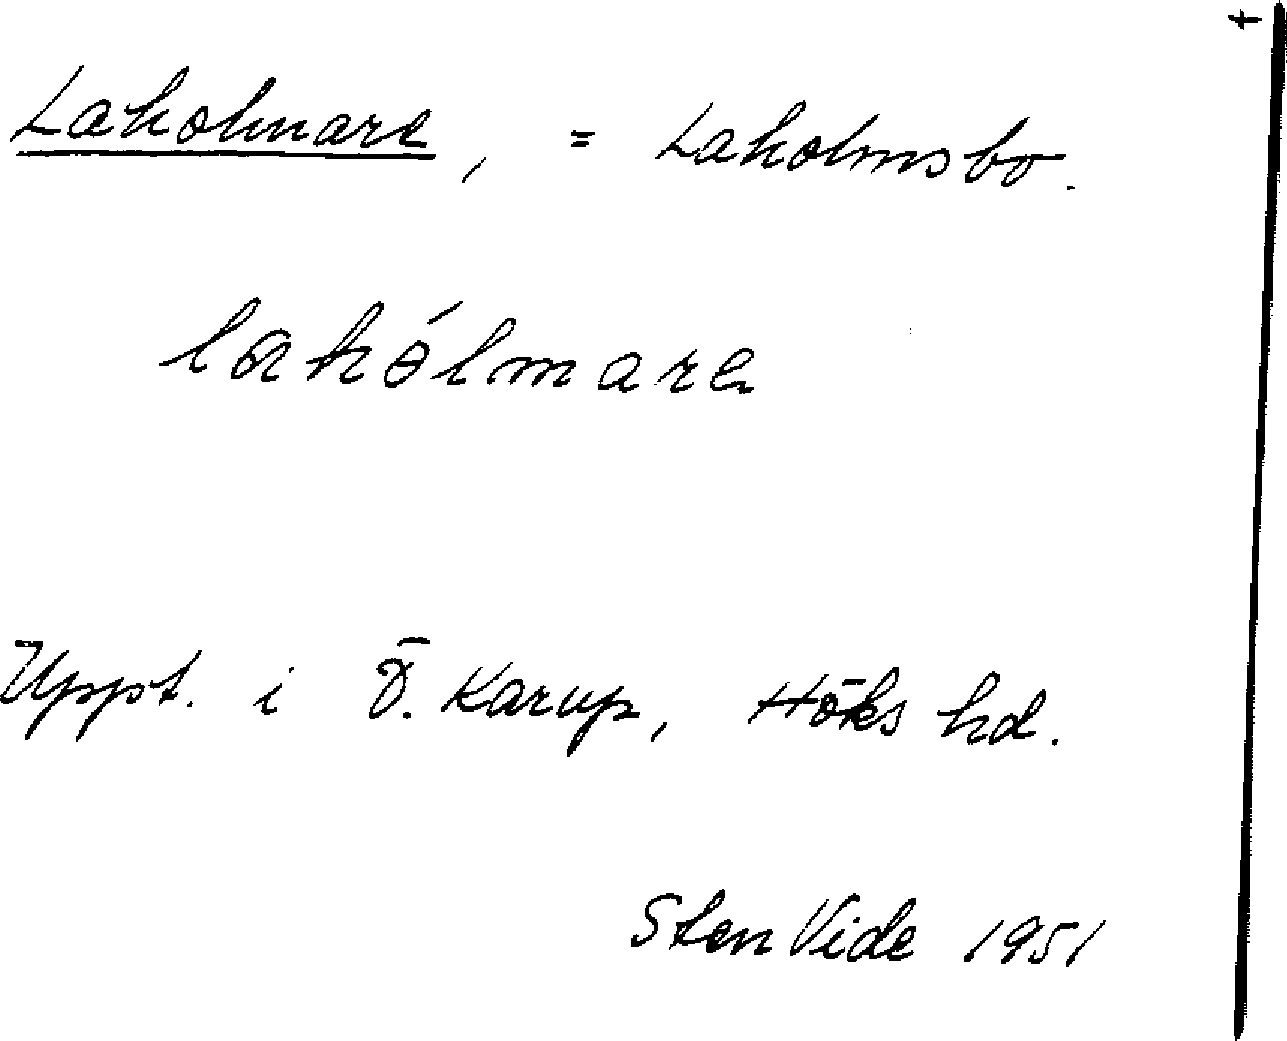 t
Laholmare, = Laholmsbo.
lahólmare
Uppt. i Ö. Karup, Höks hd.
Sten Vide 1951